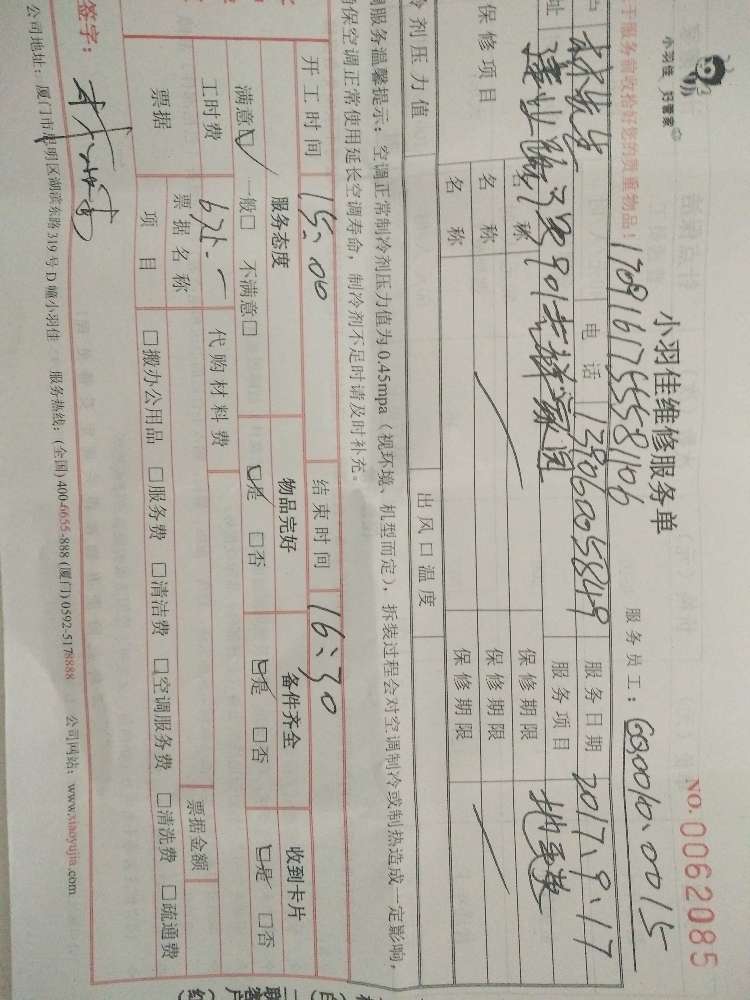 小羽佳 好管家
小羽佳维修服务单
NO. 0062085
于服务前收拾好您的贵重物品！
1709161755581106
服务员工：
户 林先生 电话 13806005849 服务日期 2017.9.17
址 服务项目
保修项目 名称 保修期限
名称 保修期限
名称 保修期限
冷剂压力值 出风口温度
调服务温馨提示：空调正常制冷剂压力值为0.45mpa（视环境、机型而定），拆装过程会对空调制冷或制热造成一定影响，
确保空调正常使用延长空调寿命，制冷剂不足时请及时补充。
开工时间 15:00 结束时间 16:30
服务态度 物品完好 备件齐全 收到卡片
满意☑ 一般□ 不满意□ ☑是 □否 ☑是 □否 ☑是 □否
工时费 代购材料费
票据 票据名称 票据金额
项目 □搬办公用品 □服务费 □清洁费 □空调服务费 □清洗费 □疏通费
签字：
公司地址：厦门市思明区湖滨东路319号D幢小羽佳 服务热线：(全国) 400-6655-888 (厦门) 0592-5178888 公司网站：www.xiaoyujia.com